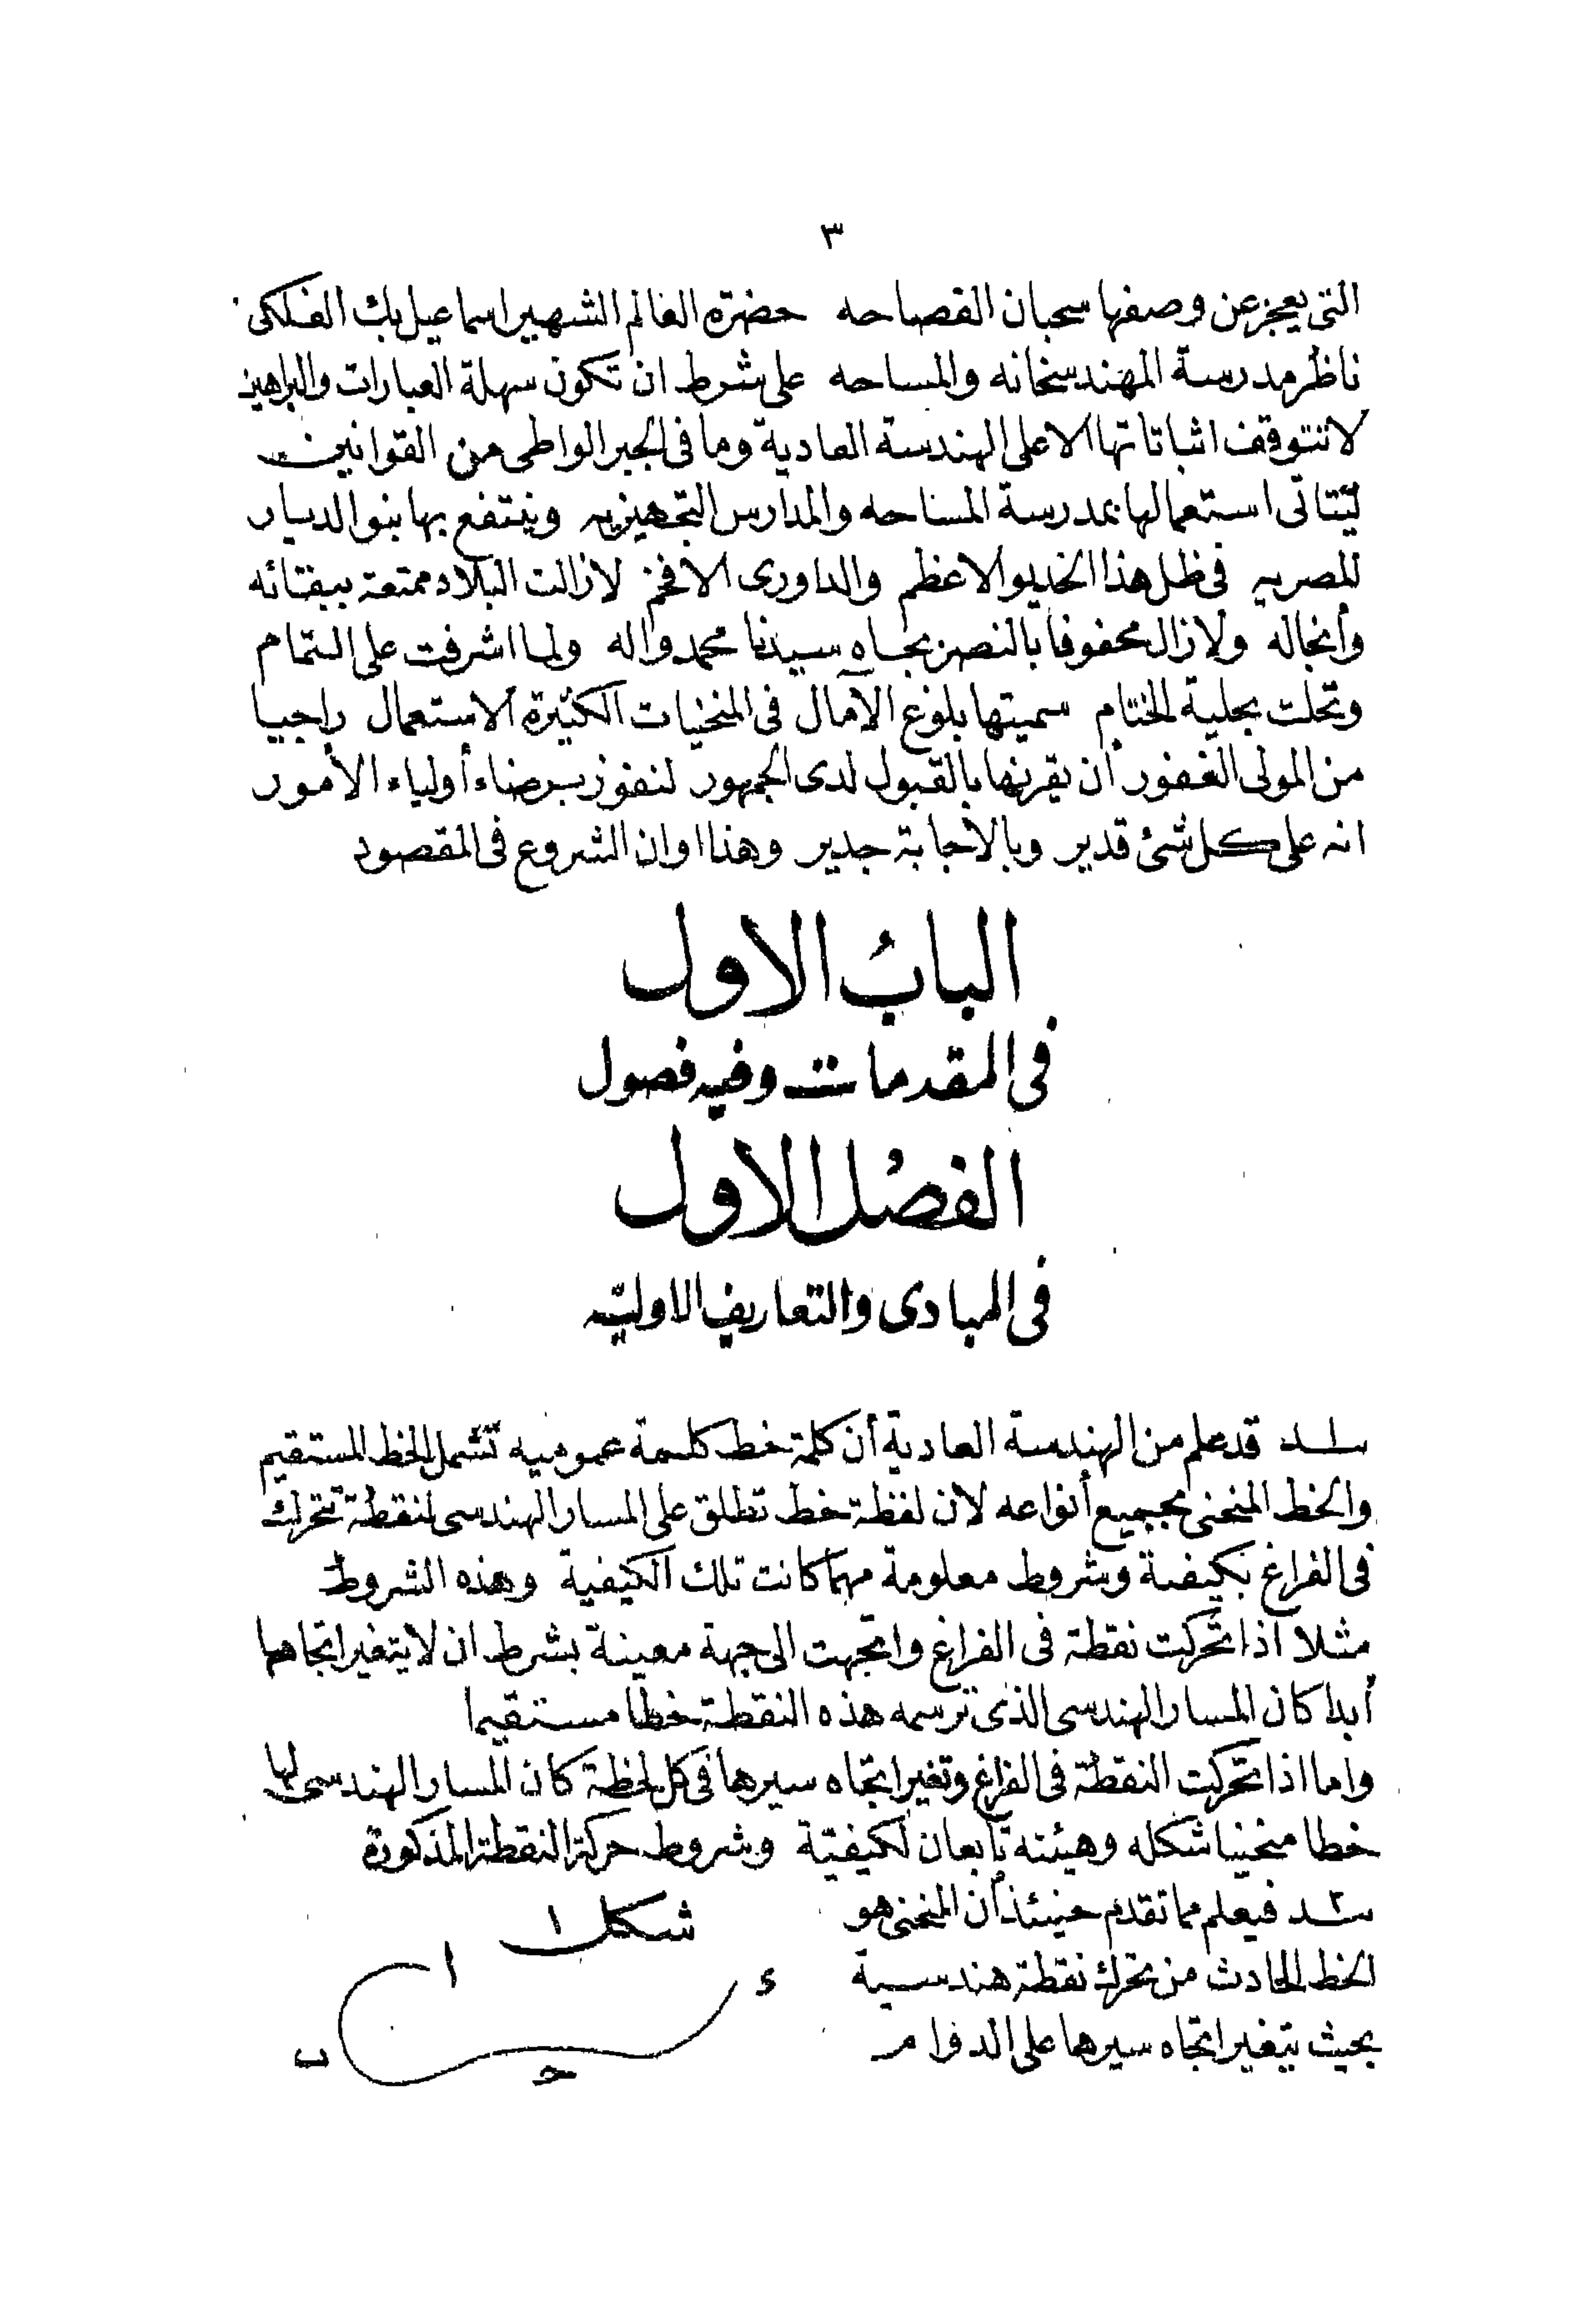 ٣
التى يعجز عن وصفها سحبان الفصاحه حضرة العالم الشهير اسماعيل بك الفلكى
ناظر مدرسة المهندسخانه والمساحه على شرط ان تكون سهلة العبارات والبراهين
لا تتوقف اثباتاتها الا على الهندسة العادية وما فى الجبر الواطى من القوانين
ليتاتى استعمالها بمدرسة المساحه والمدارس التجهيزيه وينتفع بها بنو الديار
المصريه فى ظل هذا الخديو الاعظم والداورى الافخم لازالت البلاد ممتعة ببقائه
وأنجاله ولازال محفوفا بالنصر بجاه سيدنا محمد واله ولما اشرفت على التمام
وتحلت بحلية الختام سميتها بلوغ الآمال فى المنحنيات الكثيرة الاستعمال راجيا
من المولى الغفور أن يقرنها بالقبول لدى الجمهور لنفوز برضاء أولياء الأمور
انه على كل شئ قدير وبالاجابة جدير وهذا اوان الشروع فى المقصود
الباب الاول
فى المقدمات وفيه فصول
الفصل الاول
فى المبادى والتعاريف الاوليه
١ـد قد علم من الهندسة العادية أن كلمة خط كلمة عموميه تشمل الخط المستقيم
والخط المنحنى بجميع أنواعه لان لفظة خط تطلق على المسار الهندسى لنقطة تتحرك
فى الفراغ بكيفية وشروط معلومة مهما كانت تلك الكيفية وهذه الشروط
مثلا اذا تحركت نقطة فى الفراغ واتجهت الى جهة معينة بشرط ان لا يتغير اتجاهها
أبدا كان المسار الهندسى الذى ترسمه هذه النقطة خطا مستقيما
واما اذا تحركت النقطة فى الفراغ وتغير اتجاه سيرها فى كل لحظة كان المسار الهندسى لها
خطا منحنيا شكله وهيئته تابعان لكيفية وشروط حركة النقطة المذكورة
٢ـد فيعلم مما تقدم حينئذ أن المنحنى هو
الخط الحادث من تحرك نقطة هندسية
بحيث يتغير اتجاه سيرها على الدوام
شكل ١
ا
ء
ب
حـ